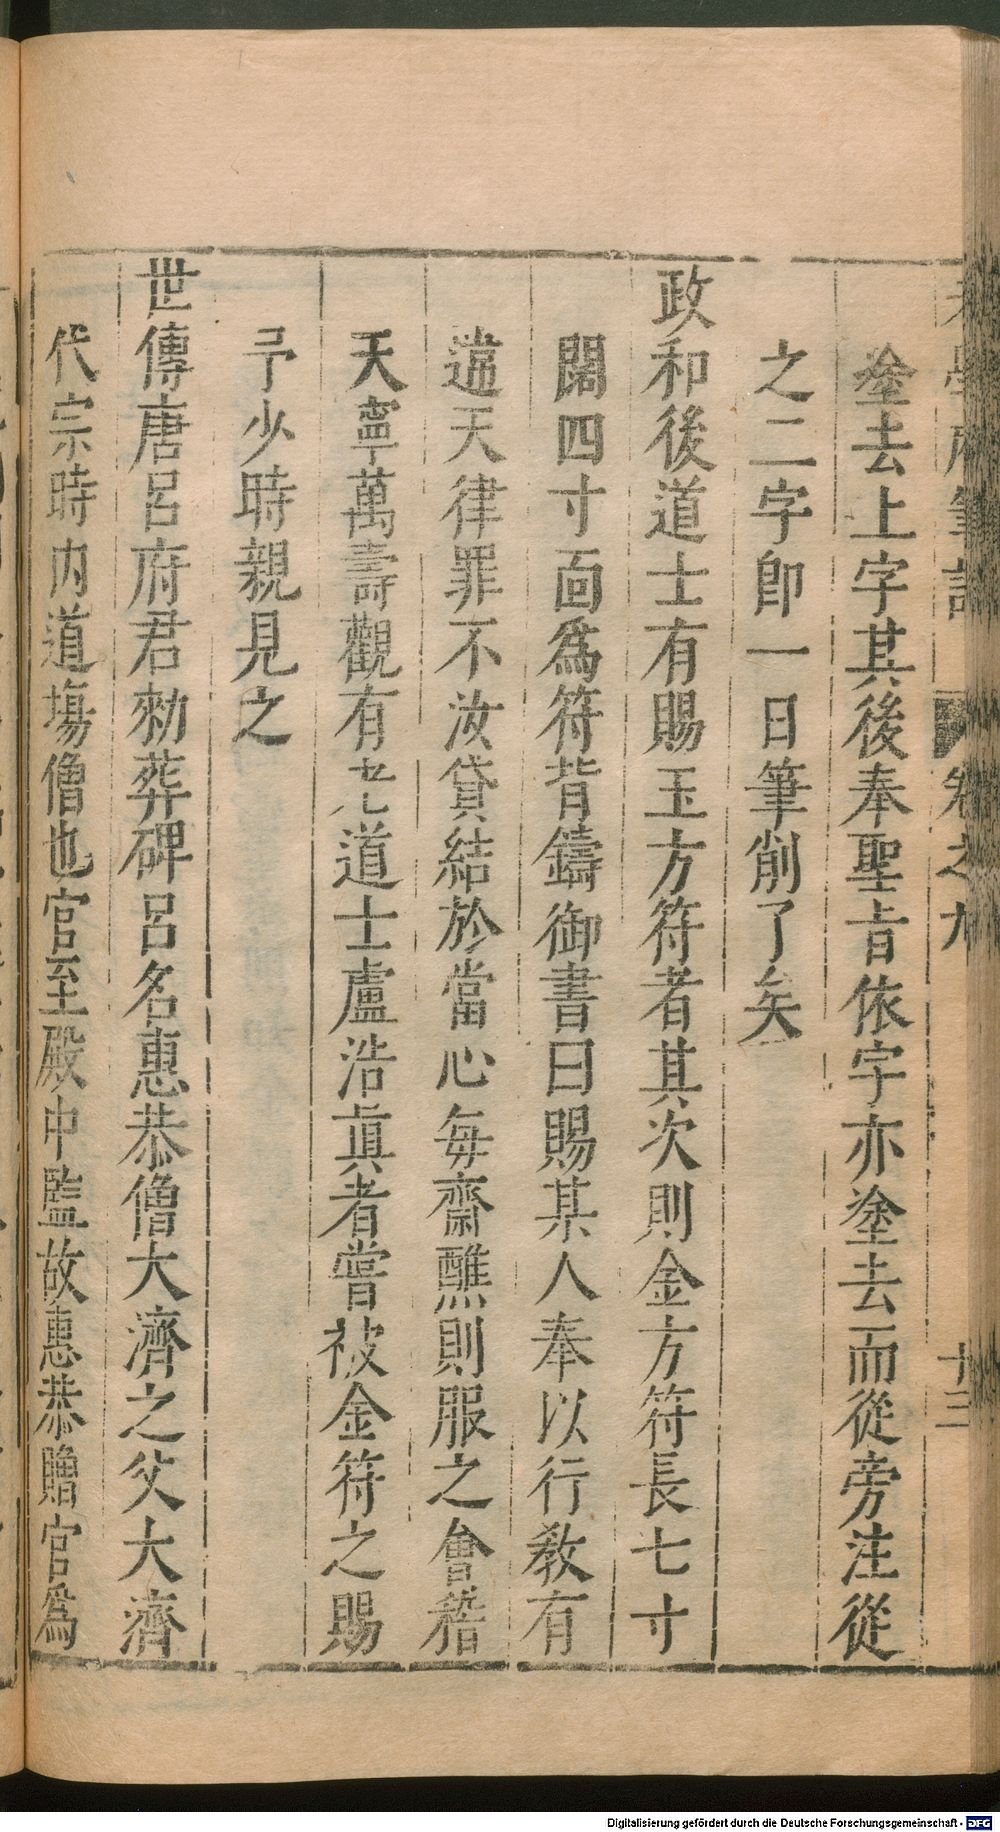 老學庵筆記 卷之九 十三
塗去上字其後奉聖旨依字亦塗去而從旁注從
之二字卽一日筆削了矣
政和後道士有賜玉方符者其次則金方符長七寸
闊四寸面爲符背鑄御書曰賜某人奉以行敎有
違天律罪不汝貸結於當心每齋醮則服之會稽
天寧萬壽觀有老道士盧浩眞者嘗被金符之賜
予少時親見之
世傳唐呂府君勑葬碑呂名惠恭僧大濟之父大濟
代宗時内道塲僧也官至殿中監故惠恭贈官爲
Digitalisierung gefördert durch die Deutsche Forschungsgemeinschaft - DFG